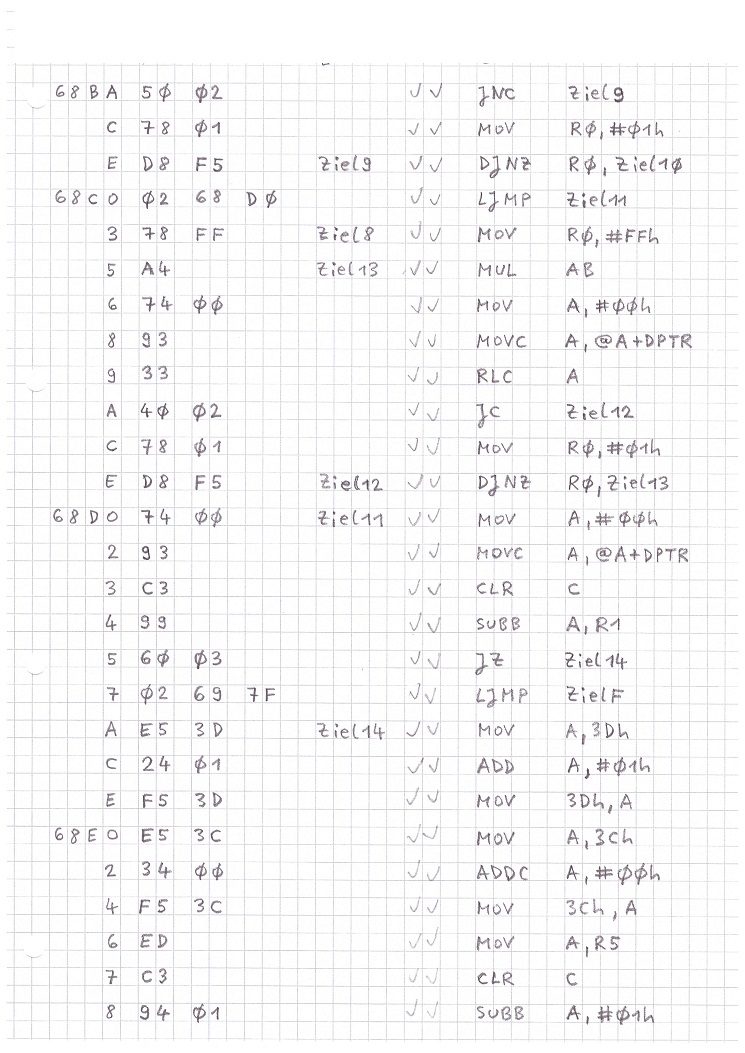 68BA 5φ φ2 ✓✓ JNC Ziel9
C 78 φ1 ✓✓ MOV Rφ, #φ1h
E D8 F5 Ziel9 ✓✓ DJNZ Rφ, Ziel1φ
68C0 φ2 68 Dφ ✓✓ LJMP Ziel11
3 78 FF Ziel8 ✓✓ MOV Rφ, #FFh
5 A4 Ziel13 ✓✓ MUL AB
6 74 φφ ✓✓ MOV A, #φφh
8 93 ✓✓ MOVC A, @A+DPTR
9 33 ✓✓ RLC A
A 4φ φ2 ✓✓ JC Ziel12
C 78 φ1 ✓✓ MOV Rφ, #φ1h
E D8 F5 Ziel12 ✓✓ DJNZ Rφ, Ziel13
68D0 74 φφ Ziel11 ✓✓ MOV A, #φφh
2 93 ✓✓ MOVC A, @A+DPTR
3 C3 ✓✓ CLR C
4 99 ✓✓ SUBB A, R1
5 6φ φ3 ✓✓ JZ Ziel14
7 φ2 69 7F ✓✓ LJMP ZielF
A E5 3D Ziel14 ✓✓ MOV A, 3Dh
C 24 φ1 ✓✓ ADD A, #φ1h
E F5 3D ✓✓ MOV 3Dh, A
68E0 E5 3C ✓✓ MOV A, 3Ch
2 34 φφ ✓✓ ADDC A, #φφh
4 F5 3C ✓✓ MOV 3Ch, A
6 ED ✓✓ MOV A, R5
7 C3 ✓✓ CLR C
8 94 φ1 ✓✓ SUBB A, #φ1h